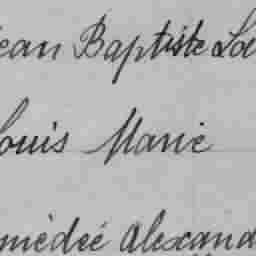 ean Baptiste Lou
ouis Marie
médée Alexand